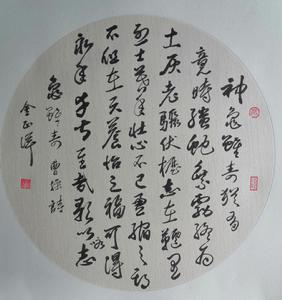 神龜雖壽猶有
竟時騰蛇乘霧終為
土灰老驥伏櫪志在千里
烈士暮年壯心不已盈縮之期
不但在天養怡之福可得
永年幸甚至哉歌以詠志
龜雖壽 曹操詩
金正